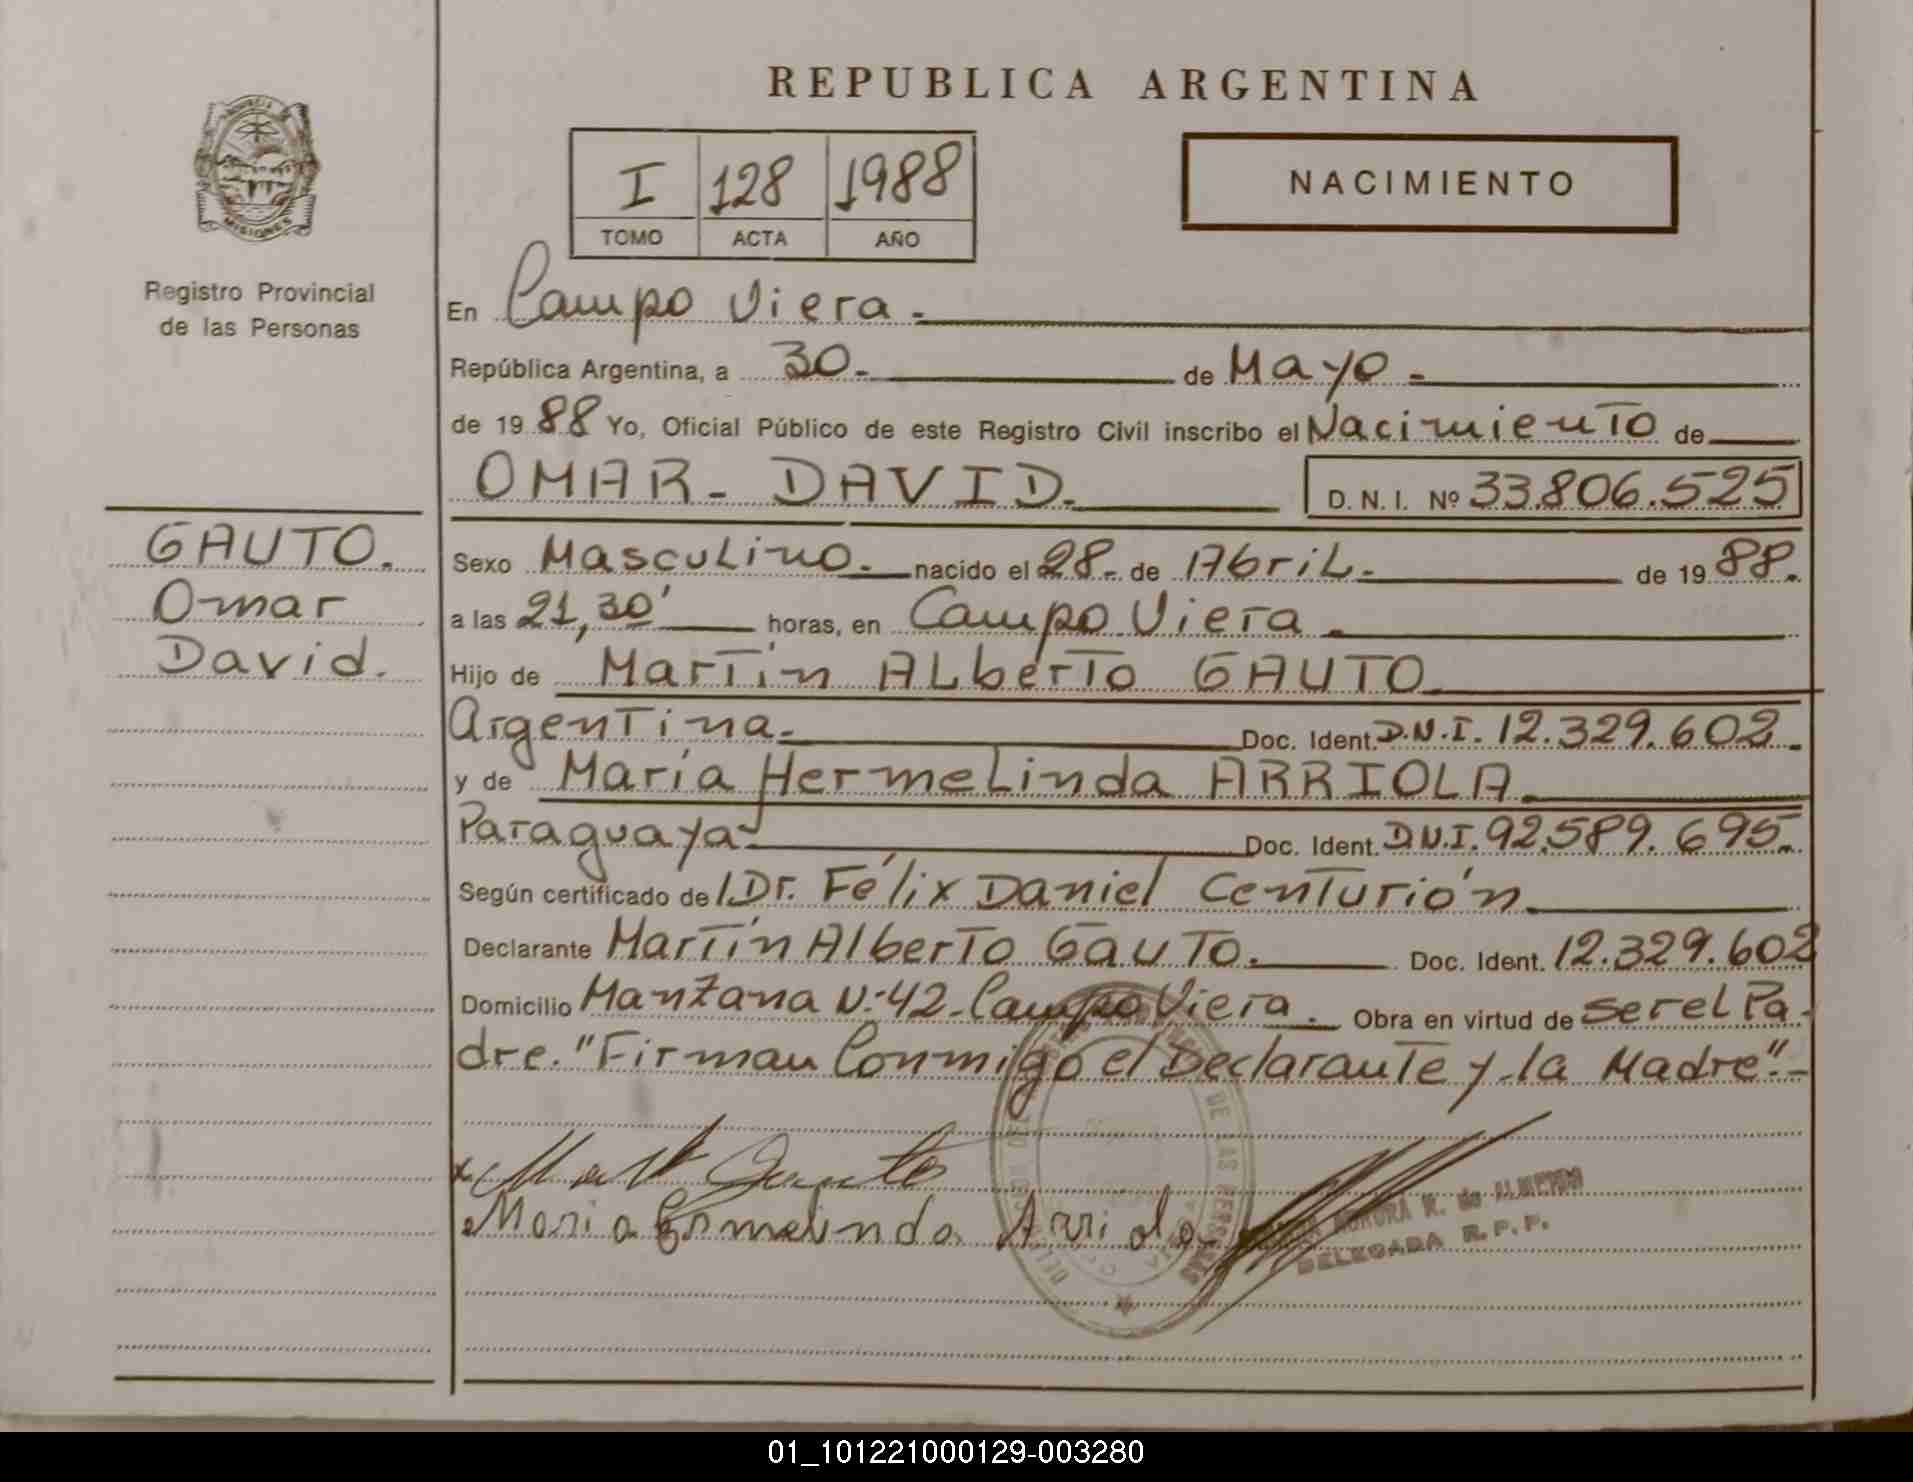 REPUBLICA ARGENTINA
MISIONES
Registro Provincial
de las Personas
I 128 1988
TOMO ACTA AÑO
NACIMIENTO
En Campo Viera.
República Argentina, a 30. de Mayo.
de 19 88 Yo, Oficial Público de este Registro Civil inscribo el Nacimiento de
OMAR - DAVID. D. N. I. Nº 33.806.525
GAUTO.
Omar
David.
Sexo Masculino. nacido el 28. de Abril. de 19 88.
a las 21,30' horas, en Campo Viera.
Hijo de Martín Alberto GAUTO.
Argentina. Doc. Ident. D.N.I. 12.329.602.
y de María Hermelinda ARRIOLA.
Paraguaya Doc. Ident. D.N.I. 92.589.695.
Según certificado de l Dr. Félix Daniel Centurión.
Declarante Martín Alberto Gauto. Doc. Ident. 12.329.602
Domicilio Manzana N: 42 - Campo Viera. Obra en virtud de ser el Pa-
dre. "Firman Conmigo el Declarante y la Madre".-
Gauto
Maria Ermelinda Arriola
AURORA R. de ALMEIDA
DELEGADA R. P. P.
DE LAS PERSONAS
01_101221000129-003280